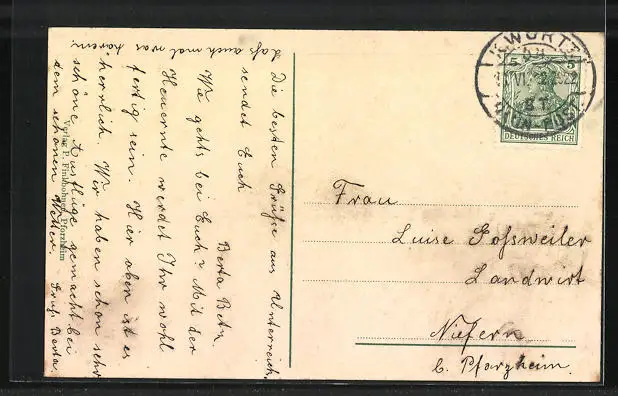 Die besten Grüße aus Unterreich.
sendet Euch
Berta Betz
Wie gehts bei Euch? Mit der
Heuernte werdet Ihr wohl
fertig sein. Hier oben ist es
herrlich. Wir haben schon sehr
schöne Ausflüge gemacht bei
dem schönen Wetter. Gruß Berta.
Laßt auch mal was hören.
Verlag P. Finkbohner, Pforzheim
K. WÜRTT.
BAHN-POST
5 5
DEUTSCHES REICH
Frau
Luise Goßweiler
Landwirt
Niefern
b. Pforzheim.